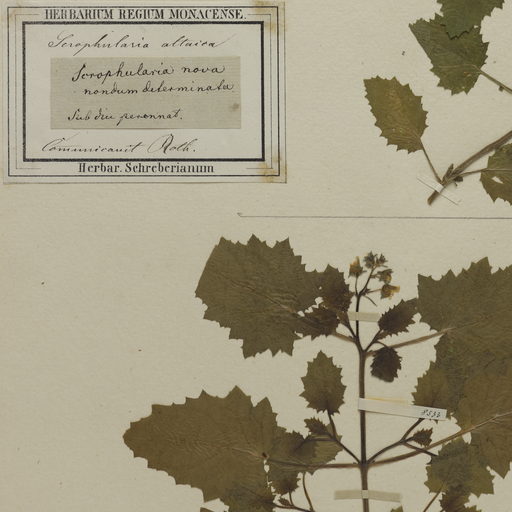 HERBARIUM REGIUM MONACENSE.
Scrophularia altaica
Scrophularia nova
nondum determinata
Sub diu perennat.
Communicavit Roth.
Herbar. Schreberianum